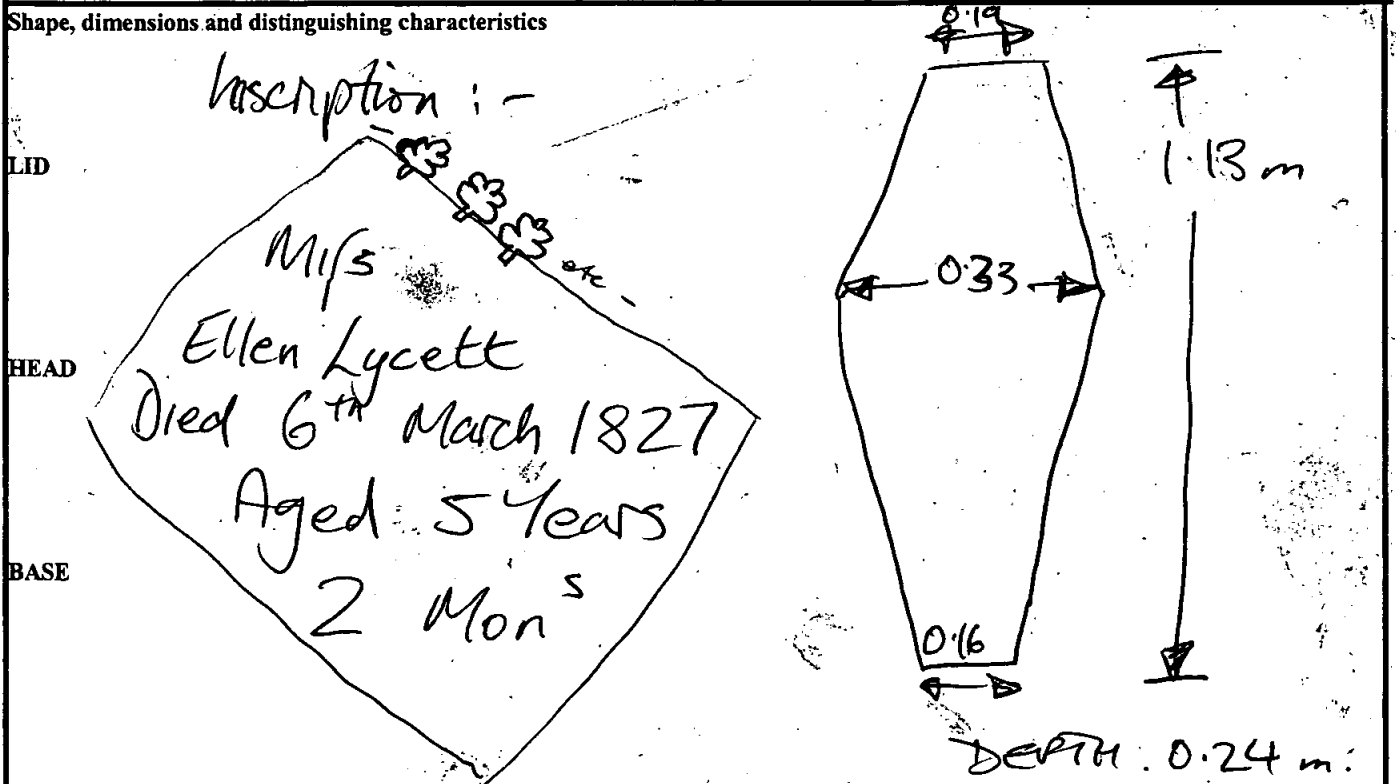 Shape, dimensions and distinguishing characteristics
Inscription :-
LID
etc -
Miſs
HEAD
Ellen Lycett
Died 6th March 1827
Aged 5 Years
BASE
2 Mons
0.19
1.13 m
0.33
0.16
DEPTH : 0.24 m.